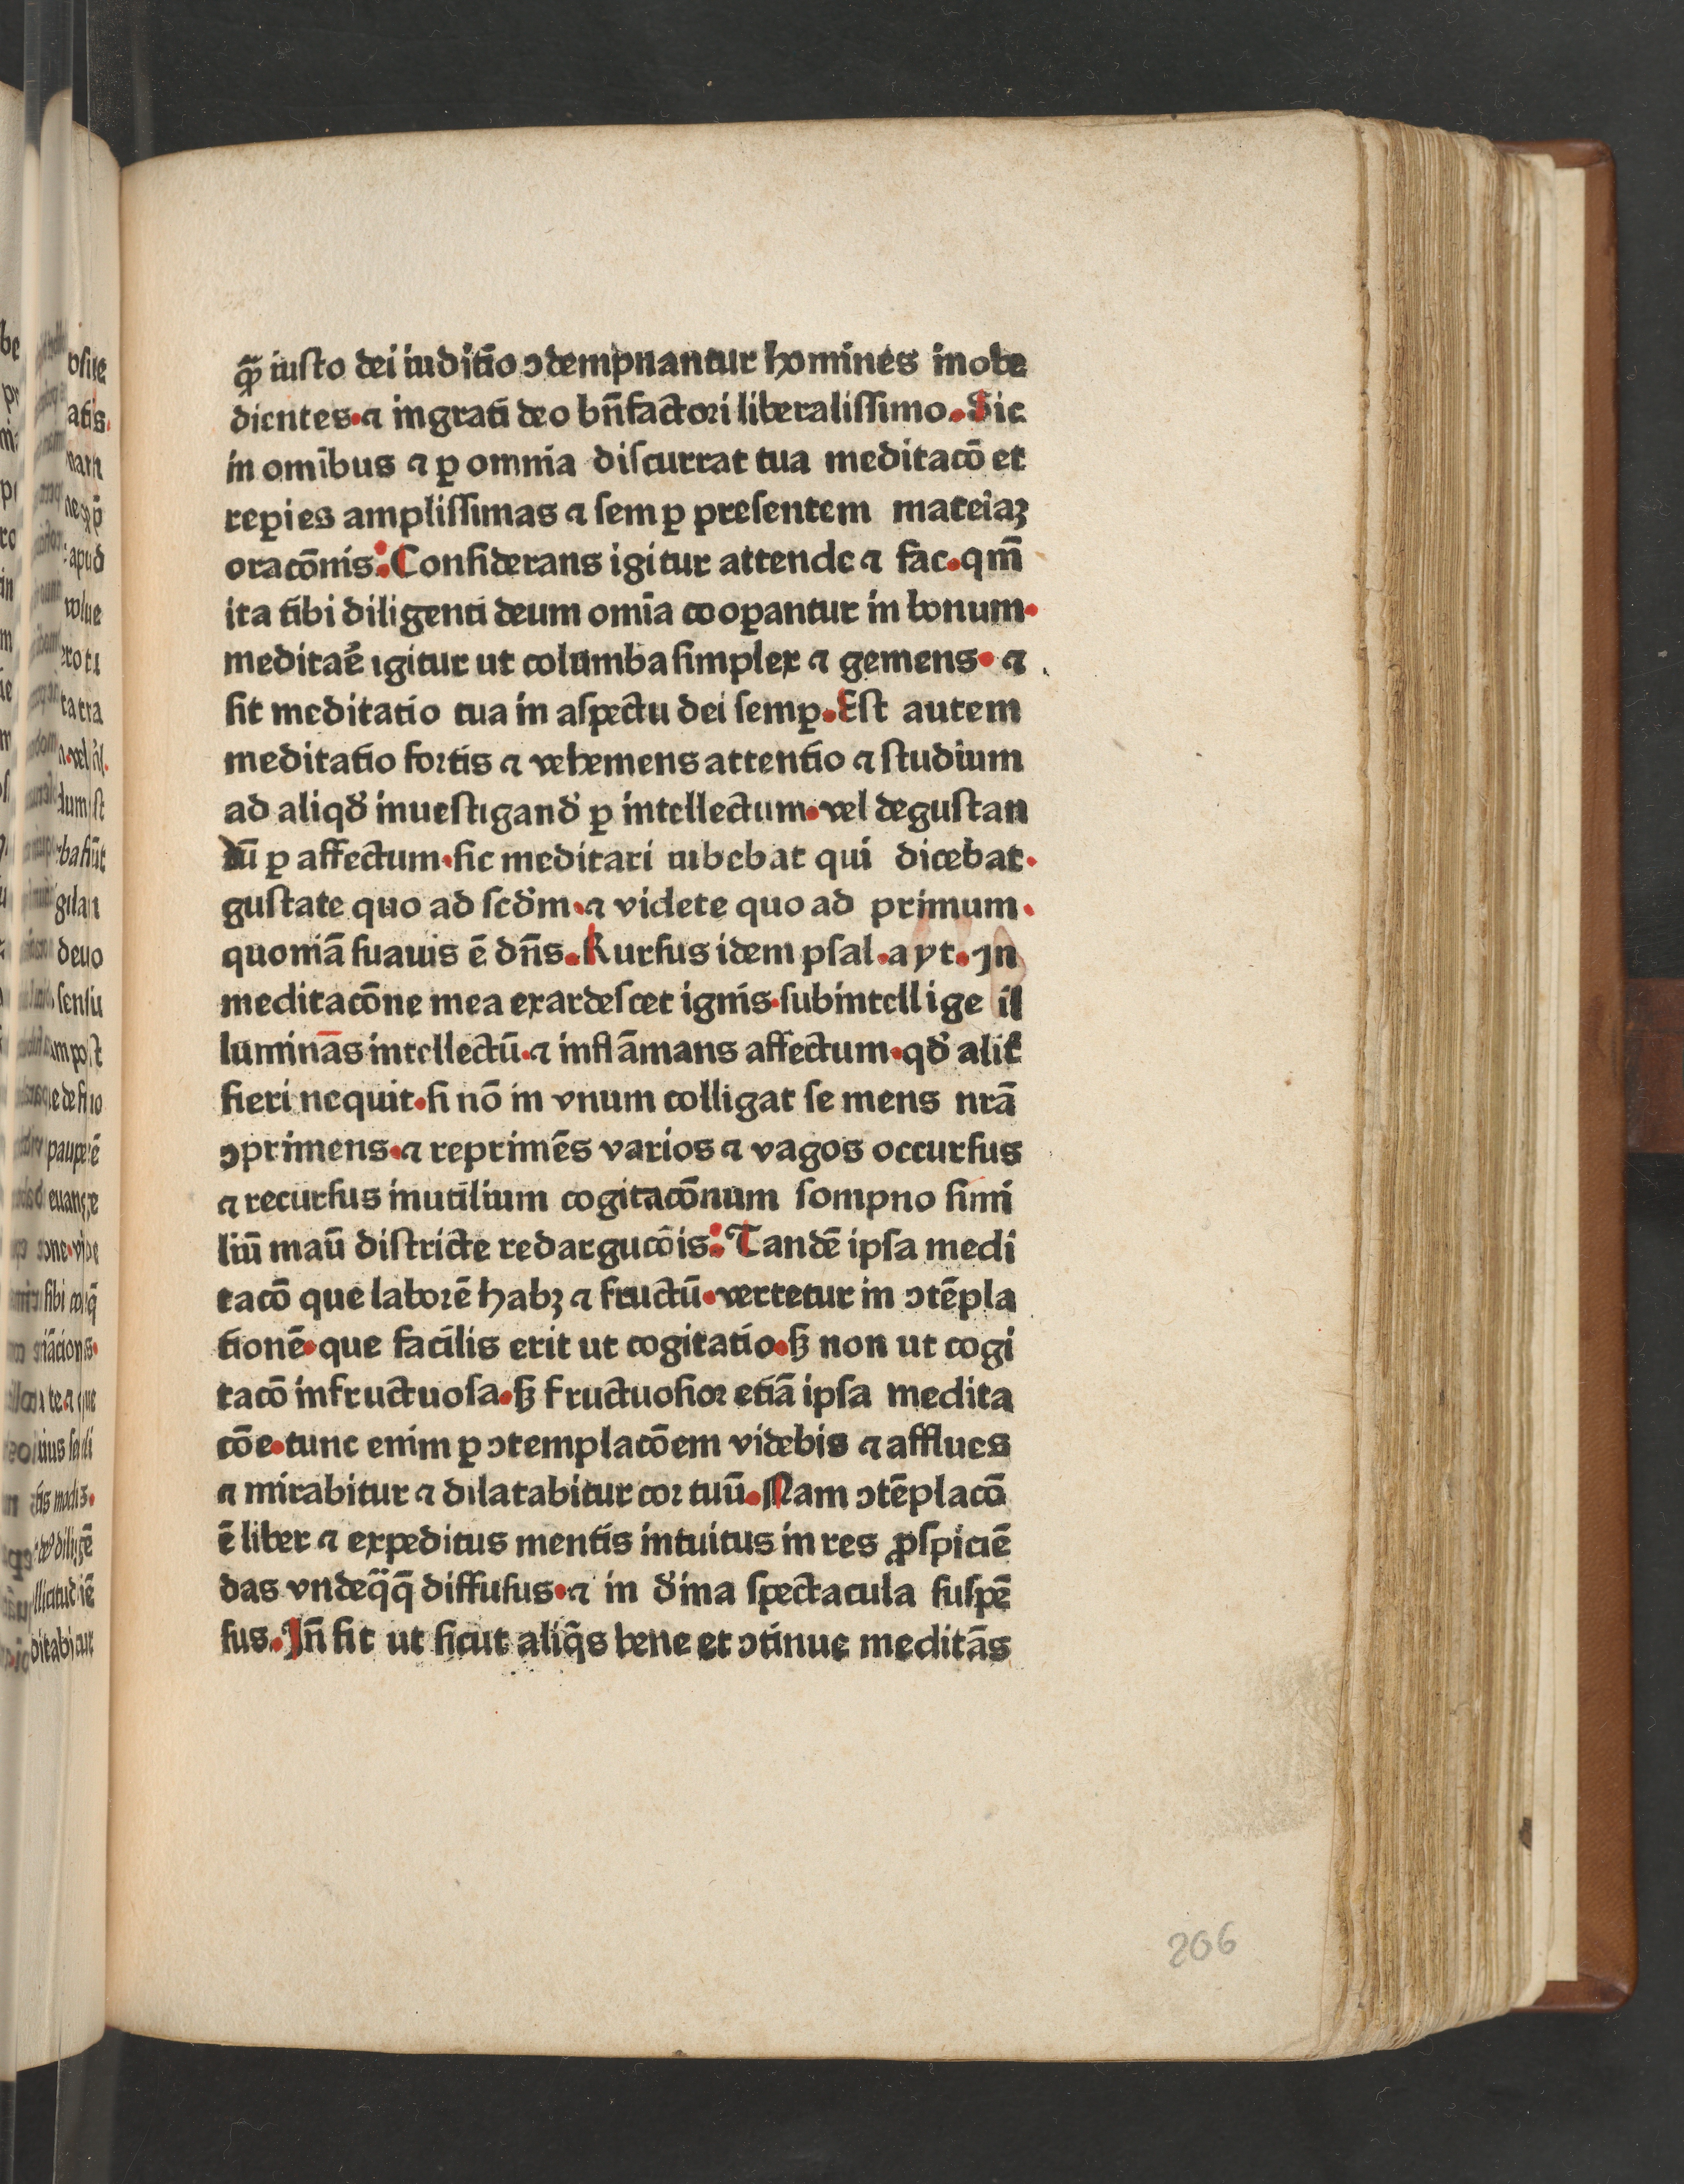 qꝝ̄ iusto dei iuditio ꝯdempnantur homines inobe
dientes·⁊ ingrati deo bn̄factori liberalissimo.Sic
in omībus ⁊ ꝑ omnia discurrat tua meditacō et
reꝑies amplissimas ⁊ semꝑ presentem mateīaꝫ
oracōnis:Considerans igitur attende ⁊ fac.qm̄
ita tibi diligenti deum omīa cooꝑantur in bonum.
meditaē igitur ut columba simplex ⁊ gemens· ⁊
sit meditatio tua in aspectu dei semꝑ.Est autem
meditatio fortis ⁊ vehemens attentio ⁊ studium
ad aliqd̓ inuestigand̓ ꝑ intellectum·vel degustan
dū ꝑ affectum·sic meditari iubebat qui dicebat.
gustate quo ad scd̓m·⁊ videte quo ad primum.
quoniā suauis ē dn̄s.Rursus idem psal.ayt.In
meditacōne mea exardescet ignis·subintellige il
luminās intellectū·⁊ inflāmans affectum·qd̓ alit̓
fieri nequit·si nō in vnum colligat se mens nrā
ꝯprimens·⁊ reprimēs varios ⁊ vagos occursus
⁊ recursus inutilium cogitacōnum sompno simi
liū maū districte redargucōis:Tandē ipsa medi
tacō que laborē habꝫ ⁊ fructū·vertetur in ꝯtēpla
tionē·que facilis erit ut cogitatio·sꝫ non ut cogi
tacō infructuosa·sꝫ fructuosior etiā ipsa medita
cōe·tunc enim ꝑ ꝯtemplacōem videbis ⁊ afflues
⁊ mirabitur ⁊ dilatabitur cor tuū.Nam ꝯtēplacō
ē liber ⁊ expeditus mentis intuitus in res ꝓspiciē
das vndeq̈q̄ diffusus·⁊ in d̓ina spectacula suspē
sus.In̄ fit ut sicut aliq̄s bene et ꝯtinue meditās
206